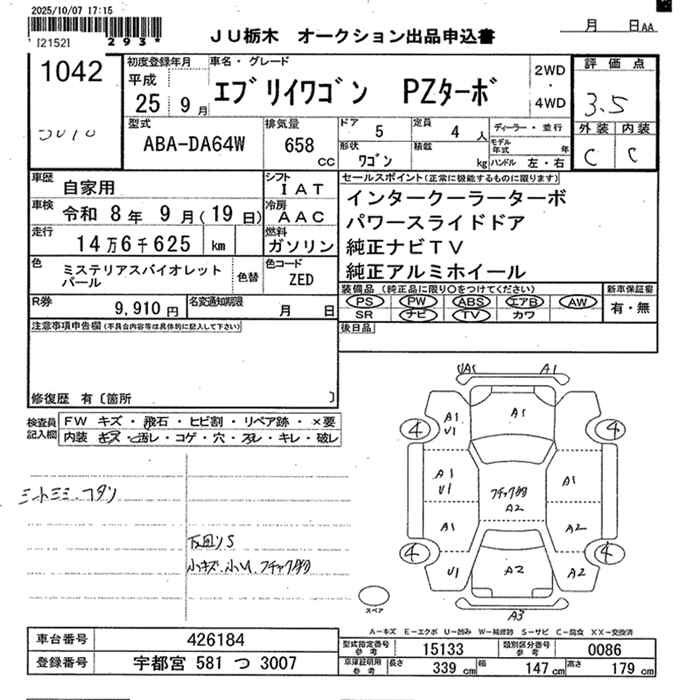 2025/10/07 17:15
293*
JU栃木 オークション出品申込書
月 日AA
1042
初度登録年月
平成
25年 9月
車名・グレード
エブリイワゴン PZターボ
2WD
・
4WD
評価点
3.5
外装 内装
C C
型式
ABA-DA64W
排気量
658
cc
ドア
5
定員
4人
ディーラー・並行
形状
ワゴン
積載
kg
モデル年式
年
ハンドル 左・右
車歴
自家用
シフト
IAT
車検
令和 8年 9月(19日)
冷房
AAC
走行
14万6千625 km
燃料
ガソリン
色
ミステリアスバイオレット
パール
色替
色コード
ZED
R券
9,910円
名変通知期限
月 日
セールスポイント(正常に機能するものに限ります)
インタークーラーターボ
パワースライドドア
純正ナビTV
純正アルミホイール
装備品(純正品に限り〇をつけてください)
PS PW ABS エアB AW
SR ナビ TV カワ
新車保証書
有・無
後日品
注意事項申告欄(不具合内容等は具体的に記入して下さい)
修復歴 有〔箇所 〕
検査員
記入欄
FW キズ・飛石・ヒビ割・リペア跡・×要
内装 キズ・汚レ・コゲ・穴・スレ・キレ・破レ
小キズ・小U・フチャクブツ
UA1 A1
A1
U1
A1
A1
4
4
A1
U1
フチャクブツ
A2
A1
A1
A2
4
4
U1
A2
A2
A3
スペア
A-キズ E-エクボ U-凹み W-補修跡 S-サビ C-腐食 XX-交換済
車台番号
426184
登録番号
宇都宮 581 つ 3007
型式指定番号
参考
15133
類別区分番号
参考
0086
車庫証明用
参考
長さ
339 cm
幅
147 cm
高さ
179 cm